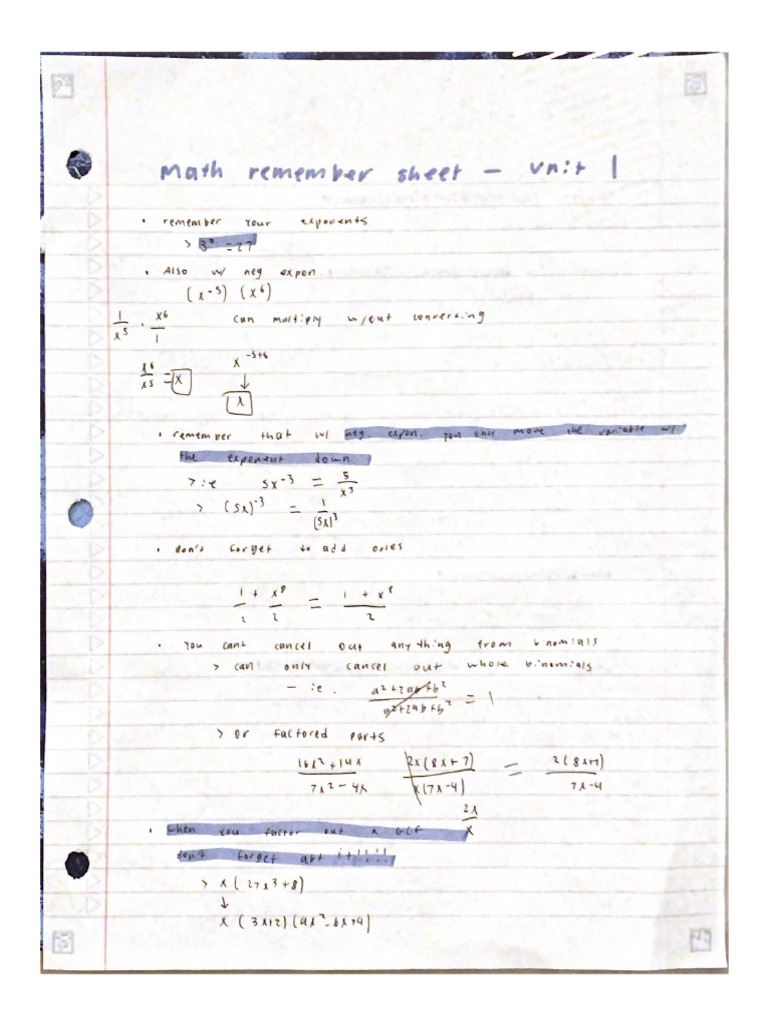 Math remember sheet - Unit 1
• remember your exponents
> 3³ = 27
• Also w/ neg expon.
(x⁻⁵) (x⁶)
1/x⁵ · x⁶/1 can multiply w/out converting
x⁶/x⁵ = x x⁻⁵⁺⁶
↓
x
• remember that w/ neg. expon. you only move the variable w/
the exponent down
> ie 5x⁻³ = 5/x³
> (5x)⁻³ = 1/(5x)³
• don't forget to add ones
1/2 + x⁸/2 = (1 + x⁸)/2
• You cant cancel out anything from binomials
> can only cancel out whole binomials
- ie. (a²+2ab+b²)/(a²+2ab+b²) = 1
> or factored parts
(16x²+14x)/(7x²-4x) 2x(8x+7)/x(7x-4) = 2(8x+7)/(7x-4)
2x/x
• when you factor out a GCF
don't forget abt it!!!!
> x(27x³+8)
↓
x(3x+2)(9x²-6x+4)